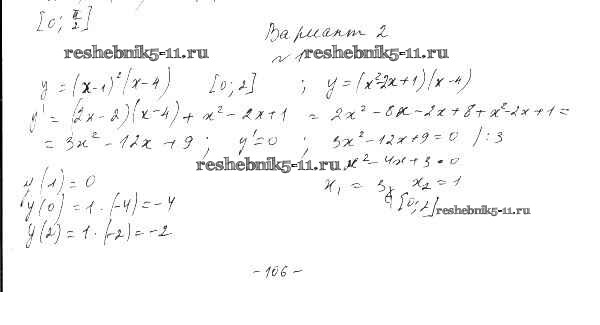 [0; π/2]
Вариант 2
reshebnik5-11.ru № 1 reshebnik5-11.ru
y = (x-1)²(x-4) [0; 2] ; y = (x²-2x+1)(x-4)
y' = (2x-2)(x-4) + x² - 2x + 1 = 2x² - 8x - 2x + 8 + x² - 2x + 1 =
= 3x² - 12x + 9 ; y' = 0 ; 3x² - 12x + 9 = 0 /:3
reshebnik5-11.ru x² - 4x + 3 = 0
y(1) = 0 x₁ = 3, x₂ = 1
y(0) = 1·(-4) = -4 ∉ [0; 2] reshebnik5-11.ru
y(2) = 1·(-2) = -2
- 106 -